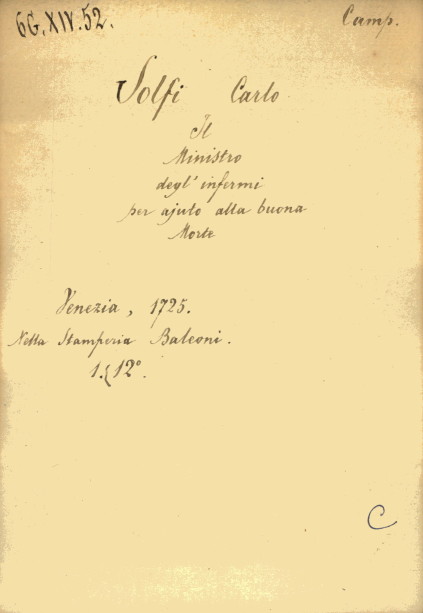 6G.XIV.52.
Camp.
Solfi Carlo
Il
Ministro
degl' infermi
per ajuto alla buona
Morte
Venezia, 1725.
Nella Stamperia Baleoni.
1.{12°.
C